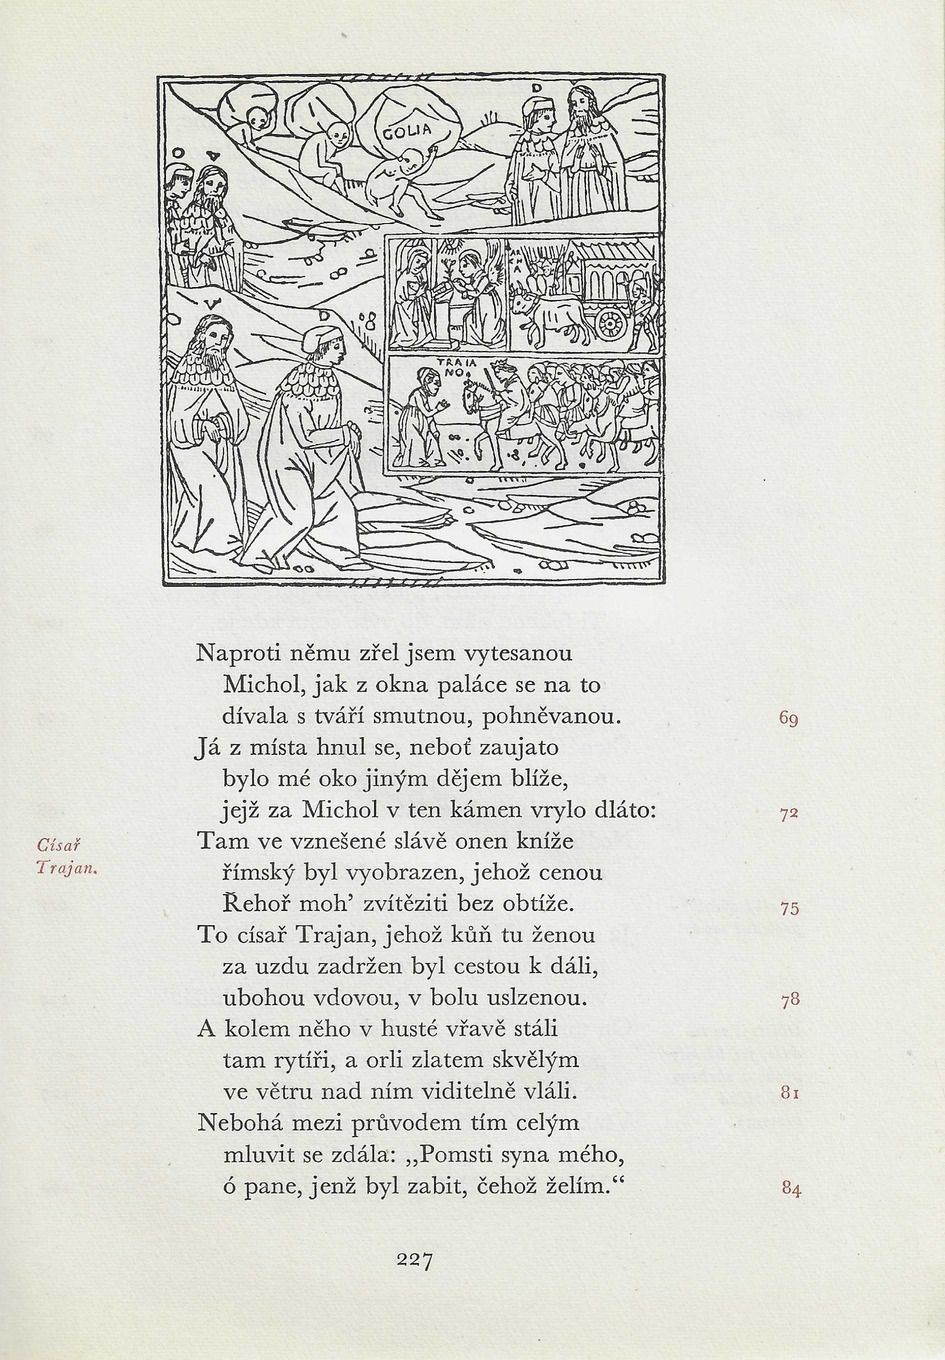 D
GOLIA
O V
ARCHA
V
D
TRAIA
NO.
Naproti němu zřel jsem vytesanou
Michol, jak z okna paláce se na to
dívala s tváří smutnou, pohněvanou. 69
Já z místa hnul se, neboť zaujato
bylo mé oko jiným dějem blíže,
jejž za Michol v ten kámen vrylo dláto: 72
Císař
Trajan.
Tam ve vznešené slávě onen kníže
římský byl vyobrazen, jehož cenou
Řehoř moh’ zvítěziti bez obtíže. 75
To císař Trajan, jehož kůň tu ženou
za uzdu zadržen byl cestou k dáli,
ubohou vdovou, v bolu uslzenou. 78
A kolem něho v husté vřavě stáli
tam rytíři, a orli zlatem skvělým
ve větru nad ním viditelně vláli. 81
Nebohá mezi průvodem tím celým
mluvit se zdála: „Pomsti syna mého,
ó pane, jenž byl zabit, čehož želím.“ 84
227